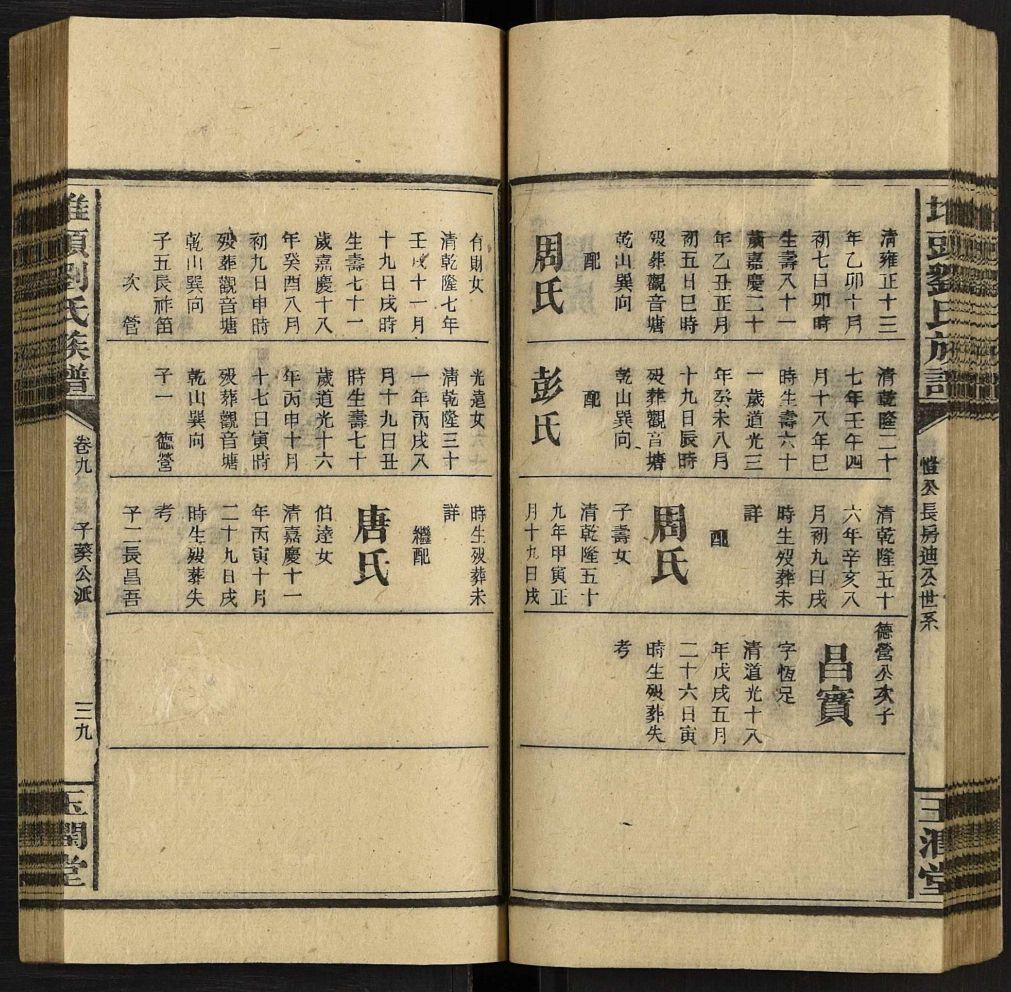 堆頭劉氏族譜
愷公長房迪公世系
玉潤堂
清雍正十三
年乙卯十月
初七日卯時
生壽八十一
歲嘉慶二十
年乙丑正月
初五日巳時
歿葬觀音塘
乾山巽向
配
周氏
清乾隆二十
七年壬午四
月十八年巳
時生壽六十
一歲道光三
年癸未八月
十九日辰時
歿葬觀音塘
乾山巽向
配
彭氏
清乾隆五十
六年辛亥八
月初九日戌
時生歿葬未
詳
配
周氏
子壽女
清乾隆五十
九年甲寅正
月十九日戌
德營公次子
昌寶
字恆足
清道光十八
年戊戌五月
二十六日寅
時生歿葬失
考
有財女
清乾隆七年
壬戌十一月
十九日戌時
生壽七十一
歲嘉慶十八
年癸酉八月
初九日申時
歿葬觀音塘
乾山巽向
子五長祚笛
次 營
光遠女
清乾隆三十
一年丙戌八
月十九日丑
時生壽七十
歲道光十六
年丙申十月
十七日寅時
歿葬觀音塘
乾山巽向
子一 德營
時生歿葬未
詳
繼配
唐氏
伯達女
清嘉慶十一
年丙寅十月
二十九日戌
時生歿葬失
考
子二長昌吾
堆頭劉氏族譜
卷九
子葵公派
三九
玉潤堂